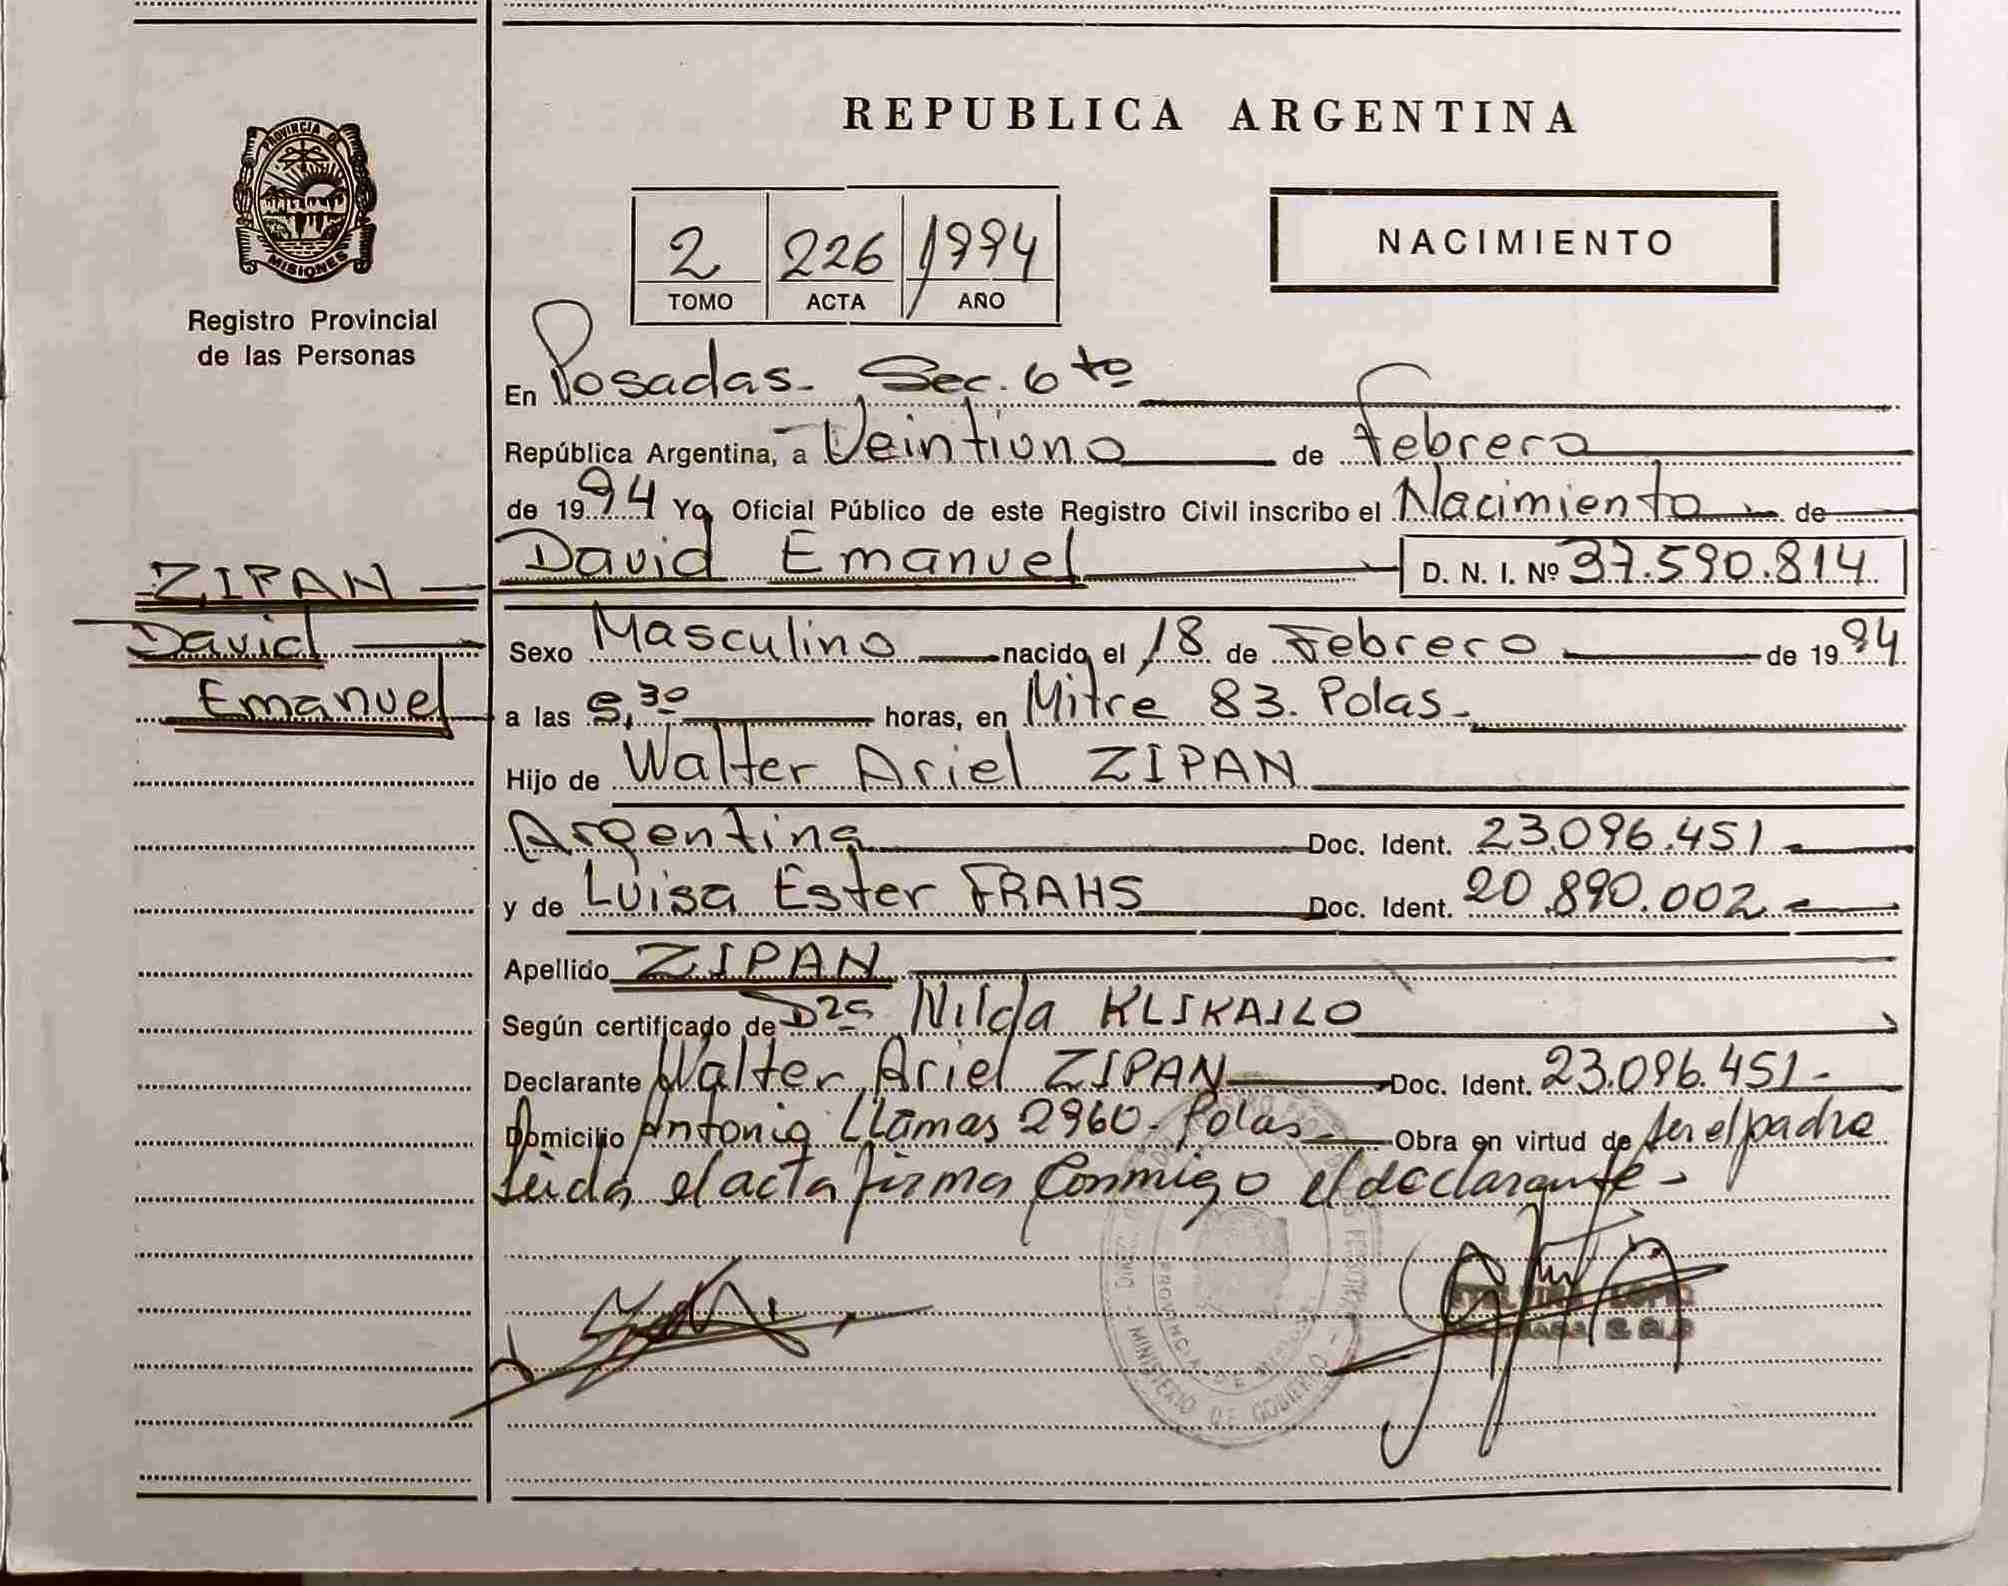 PROVINCIA DE
MISIONES
Registro Provincial
de las Personas
ZIPAN
David
Emanuel
REPUBLICA ARGENTINA
2 226 1994
TOMO ACTA AÑO
NACIMIENTO
En Posadas- Sec. 6to
República Argentina, a Veintiuno de Febrero
de 1994 Yo, Oficial Público de este Registro Civil inscribo el Nacimiento de
David Emanuel D. N. I. Nº 37.590.814
Sexo Masculino nacido el 18 de Febrero de 1994
a las 5,30 horas, en Mitre 83. Polas-
Hijo de Walter Ariel ZIPAN
Argentina Doc. Ident. 23.096.451-
y de Luisa Ester FRAHS Doc. Ident. 20.890.002-
Apellido ZIPAN
Según certificado de Dra Nilda KLIKAILO
Declarante Walter Ariel ZIPAN Doc. Ident. 23.096.451-
Domicilio Antonia Llamas 2960- Polas- Obra en virtud de ser el padre
Leida el acta firma conmigo el declarante-
MINISTERIO DE GOBIERNO